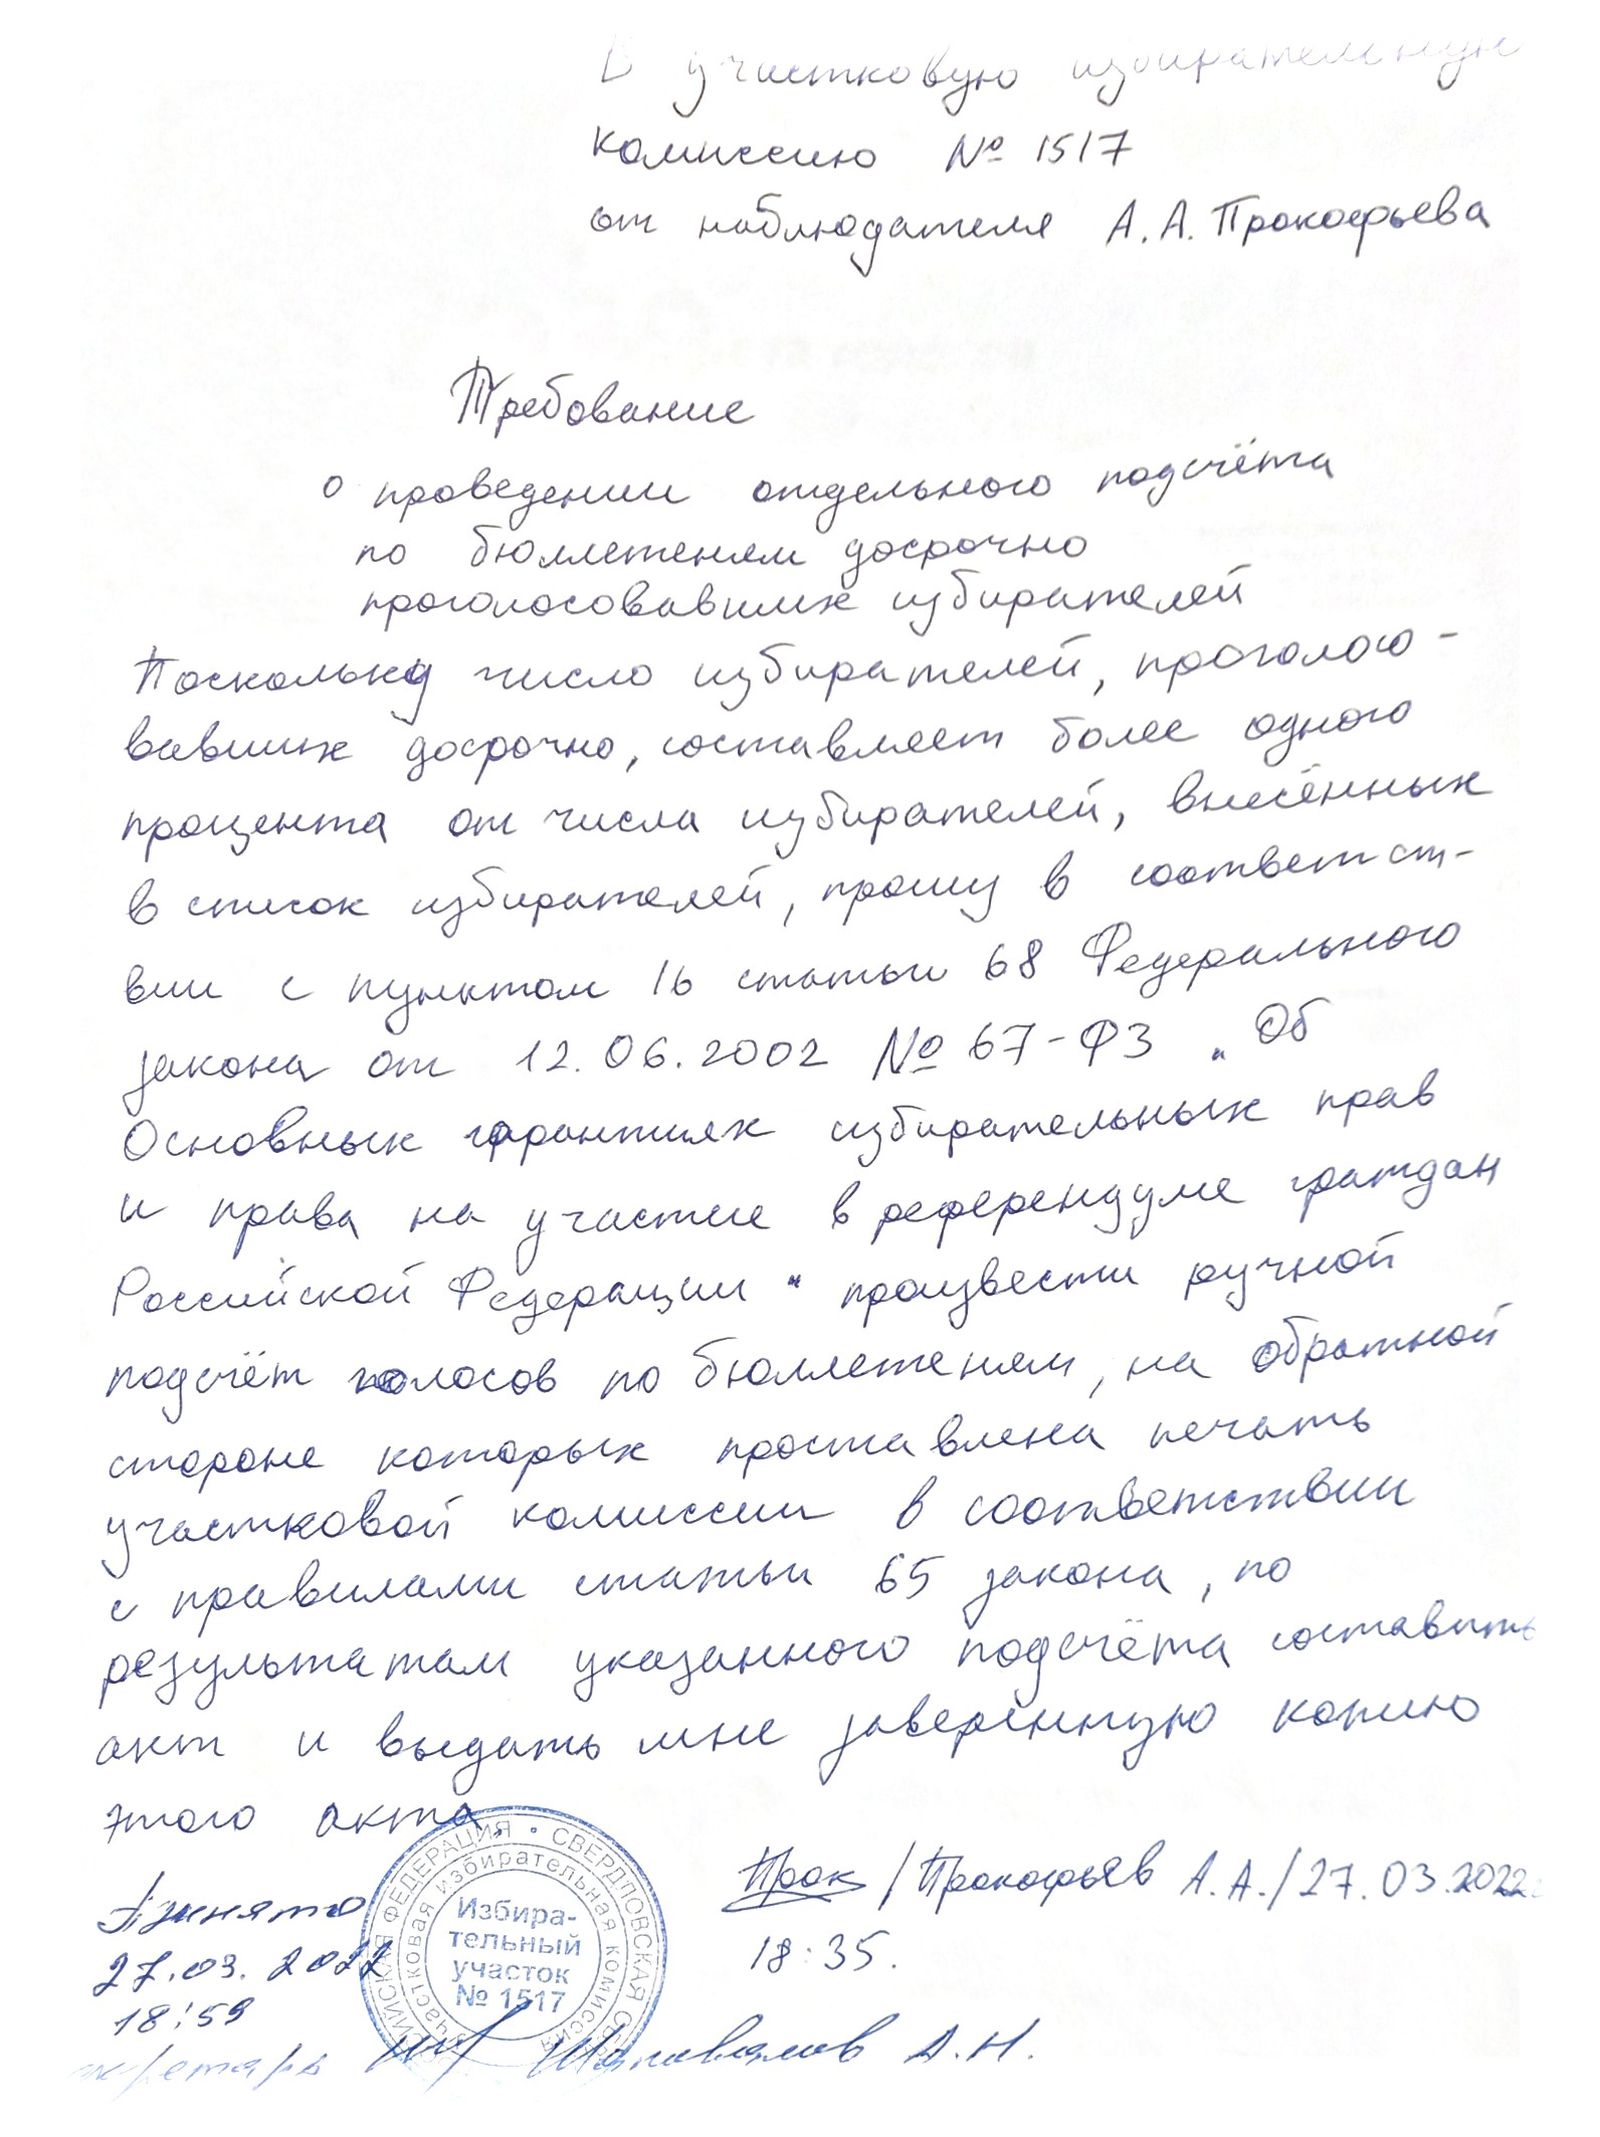 В участковую избирательную
комиссию № 1517
от наблюдателя А.А. Прокофьева
Требование
о проведении отдельного подсчёта
по бюллетеням досрочно
проголосовавших избирателей
Поскольку число избирателей, проголосо-
вавших досрочно, составляет более одного
процента от числа избирателей, внесённых
в список избирателей, прошу в соответст-
вии с пунктом 16 статьи 68 Федерального
закона от 12.06.2002 № 67-ФЗ „Об
Основных гарантиях избирательных прав
и права на участие в референдуме граждан
Российской Федерации" произвести ручной
подсчёт голосов по бюллетеням, на обратной
стороне которых проставлена печать
участковой комиссии в соответствии
с правилами статьи 65 закона, по
результатам указанного подсчёта составить
акт и выдать мне заверенную копию
этого акта.
Прок /Прокофьев А.А./ 27.03.2022
18:35.
Принято
27.03.2022
18:59
секретарь Шаповалов А.Н.
РОССИЙСКАЯ ФЕДЕРАЦИЯ • СВЕРДЛОВСКАЯ
Участковая избирательная комиссия
Избира-
тельный
участок
№ 1517